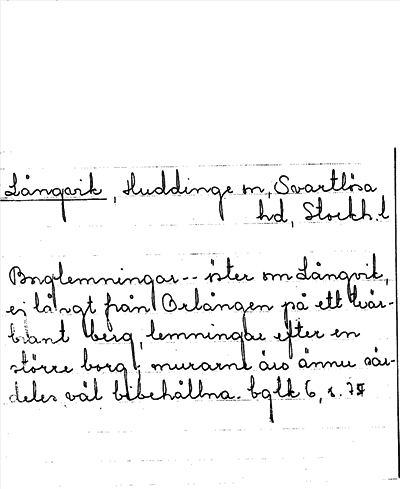 Långvik, Huddinge sn, Svartlösa
hd, Stockh. l
Borglemningar -- öster om Långvik,
ej långt från Orlången på ett tvär-
brant berg, lemningar efter en
större borg; murarne äro ännu sär-
deles väl bibehållna. bglk 6, s.